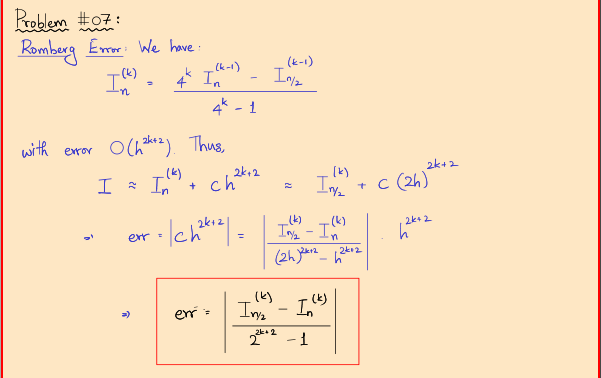 Problem #07:
Romberg Error: We have:
I_n^(k) = (4^k I_n^(k-1) - I_{n/2}^(k-1)) / (4^k - 1)
with error O(h^{2k+2}). Thus,
I ≈ I_n^(k) + c h^{2k+2} ≈ I_{n/2}^(k) + c (2h)^{2k+2}
⇒ err = |c h^{2k+2}| = | (I_{n/2}^(k) - I_n^(k)) / ((2h)^{2k+2} - h^{2k+2}) | . h^{2k+2}
⇒ err = | (I_{n/2}^(k) - I_n^(k)) / (2^{2k+2} - 1) |